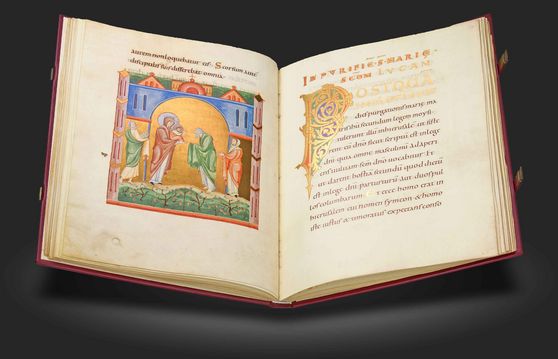 autem non loquebatur eis. Seorsum autē
discipulis suis disserebat omnia.
IN PURIFIC S MARIE
SCDM LUCAN
POSTQUA
dies purgationis
secundum legem moysi.
tulerunt illum inhierusalē ut siste
rent eū dn̄o. sicut scriptū est inlege
dn̄i. quia omne masculinū adaperi
ens uuluam scm̄ dn̄o uocabitur. Et
ut darent hostiā secundū quod dictū
est inlege dn̄i. par turturū aut duos pul
los columbarum. Et ecce homo erat in
hierusalem cui nomen symeon. & homo
iste iustus & timoratus expectans conso